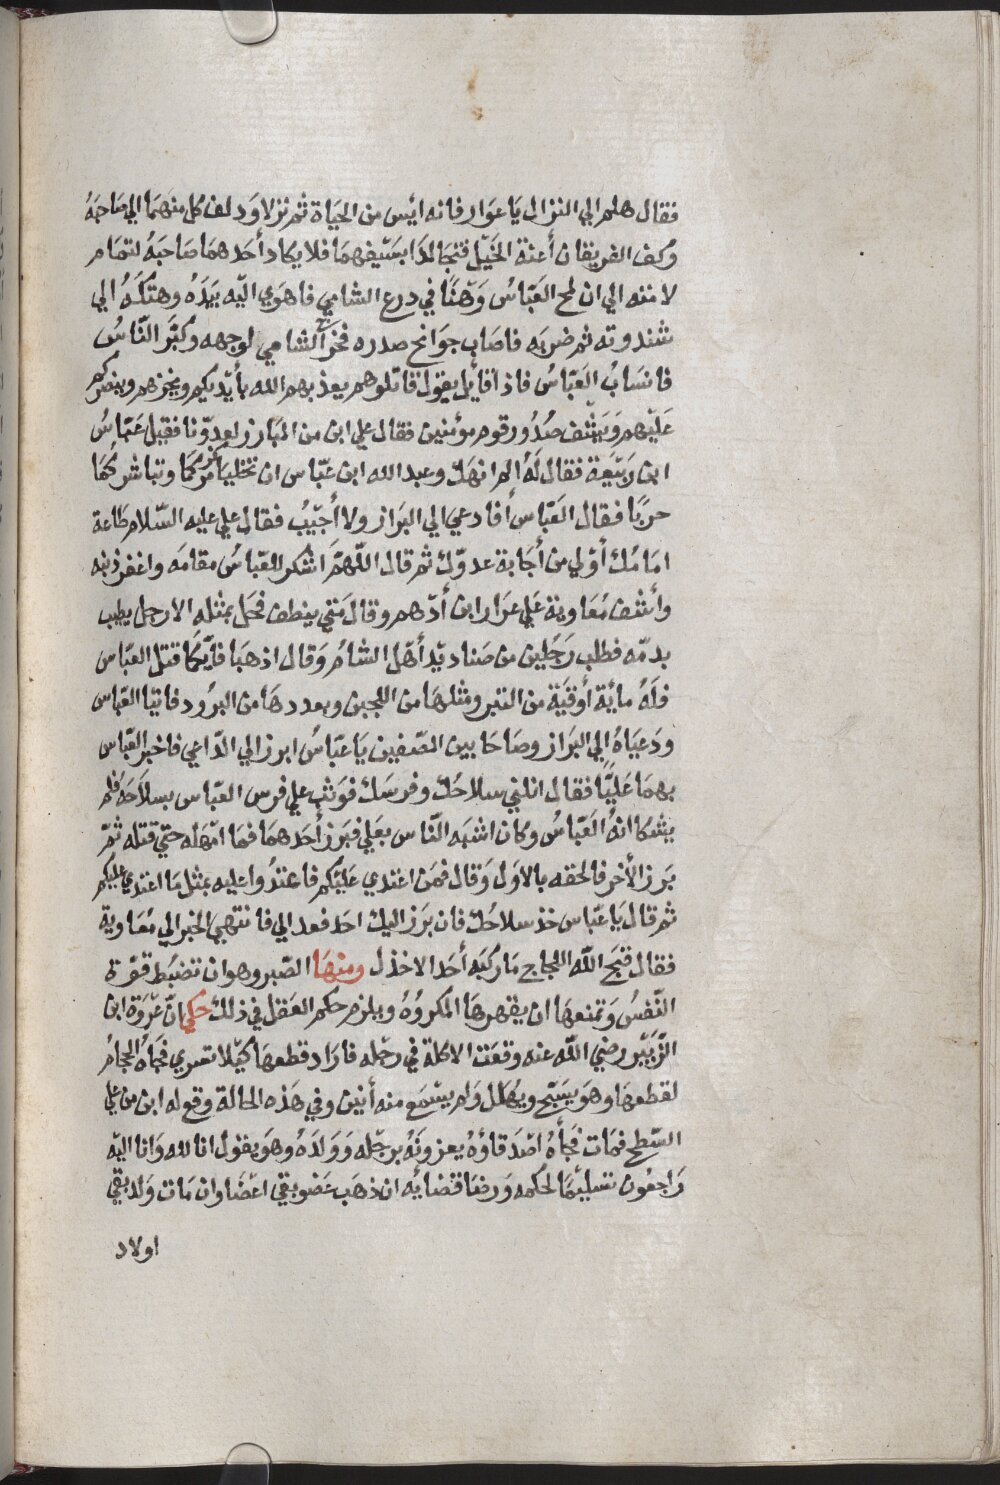 فقال هلم الي النزال يا عوار فانه ايس من الحياة ثم نزلا ودلف كل منهما الي صاحبه
وكف الفريقان أعنة الخيل فتجالدا بسيفهما فلا يكاد أحدهما صاحبه لتمام
لامته الي ان لمح العباس وهنا في درع الشامي فاهوي اليه بيده وهتكه الي
شندوته ثم ضربه فاصاب جوانح صدره فخر الشامي لوجهه وكبر الناس
فانساب العباس فاذا قايل يقول قاتلوهم يعذبهم الله بأيديكم ويخزهم وينصركم
عليهم ويشف صدور قوم مؤمنين فقال علي ابن من المبارز لعدونا فقيل عباس
ابن ربيعة فقال له الم انهك وعبد الله ابن عباس ان تخليا مركزكما وتباشركما
حربا فقال العباس أفادعي الي البراز ولا أجيب فقال علي عليه السلام طاعة
امامك أولي من أجابة عدوك ثم قال اللهم اشكر للعباس مقامه واغفر ذنبه
وأسف معاوية علي عرار ابن أدهم وقال متي ينطف فحل بمثله الا رجل يطيب
بدمه فطلب رجلين من صناديد أهل الشام وقال اذهبا فأيكما قتل العباس
فله مائة أوقية من التبر ومثلها من اللجين وبعددها من البرود فاتيا العباس
ودعياه الي البراز وصاحا بين الصفين يا عباس ابرز الي الداعي فاخبر العباس
بهما عليا فقال انلني سلاحك وفرسك فوثب علي فرس العباس بسلاحه فلم
يشكا انه العباس وكان اشبه الناس بعلي فبرز أحدهما فما امهله حتي قتله ثم
برز الأخر فالحقه بالاول وقال فمن اعتدي عليكم فاعتدوا عليه بمثل ما اعتدي عليكم
ثم قال يا عباس خذ سلاحك فان برز اليك احد فعد الي فانتهي الخبر الي معاوية
فقال قبح الله اللجاج ما ركبه أحد الا خذل ومنها الصبر وهو ان تضبط قوة
النفس وتمنعها ان يقهرها المكروه ويلزم حكم العقل في ذلك حكي ان عروة ابن
الزبير رضي الله عنه وقعت الاكلة في رجله فاراد قطعها كيلا تسري فجاه الحجام
لقطعها وهو يسبح ويهلل ولم يسمع منه أنين وفي هذه الحالة وقع له ابن من علي
السطح فمات فجأه اصدقاؤه يعزونه برجله وولده وهو يقول انا لله وانا اليه
راجعون تسليما لحكمه ورضا قضايه ان ذهب عضو بقي اعضا وان مات ولد بقي
اولاد